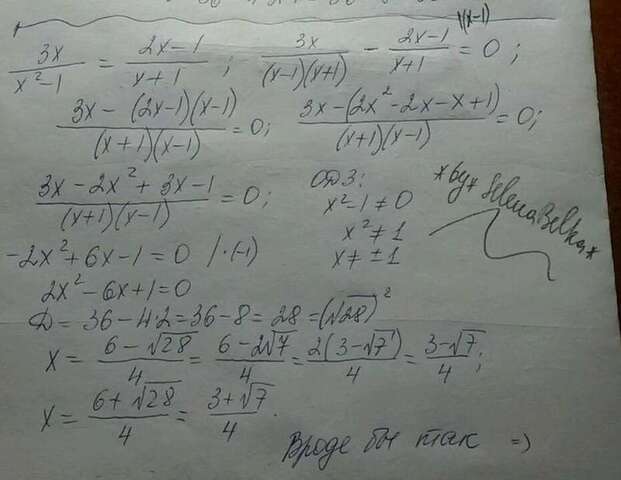 3x/(x²-1) = (2x-1)/(x+1) ; 3x/((x-1)(x+1)) - (2x-1)/(x+1) \(x-1) = 0 ;
(3x - (2x-1)(x-1))/((x+1)(x-1)) = 0; (3x - (2x² - 2x - x + 1))/((x+1)(x-1)) = 0;
(3x - 2x² + 3x - 1)/((x+1)(x-1)) = 0;
ОДЗ:
x² - 1 ≠ 0
x² ≠ 1
x ≠ ±1
*by* SelenaBelka*
-2x² + 6x - 1 = 0 | · (-1)
2x² - 6x + 1 = 0
D = 36 - 4·2 = 36 - 8 = 28 = (√28)²
x = (6 - √28)/4 = (6 - 2√7)/4 = 2(3 - √7)/4 = (3 - √7)/4 ;
x = (6 + √28)/4 = (3 + √7)/4 .
Вроде бы так =)